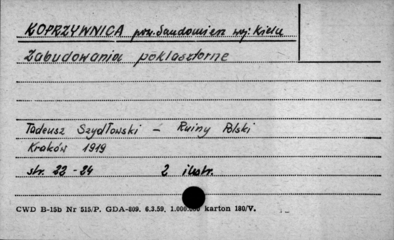 KOPRZYWNICA pow. Sandomierz woj: Kielce
Zabudowania poklasztorne
Tadeusz Szydłowski – Ruiny Polski
Kraków 1919
str. 22 - 24 2 ilustr.
CWD B-15b Nr 515/P. GDA-809. 6.3.59. 1.000.000 karton 180/V.